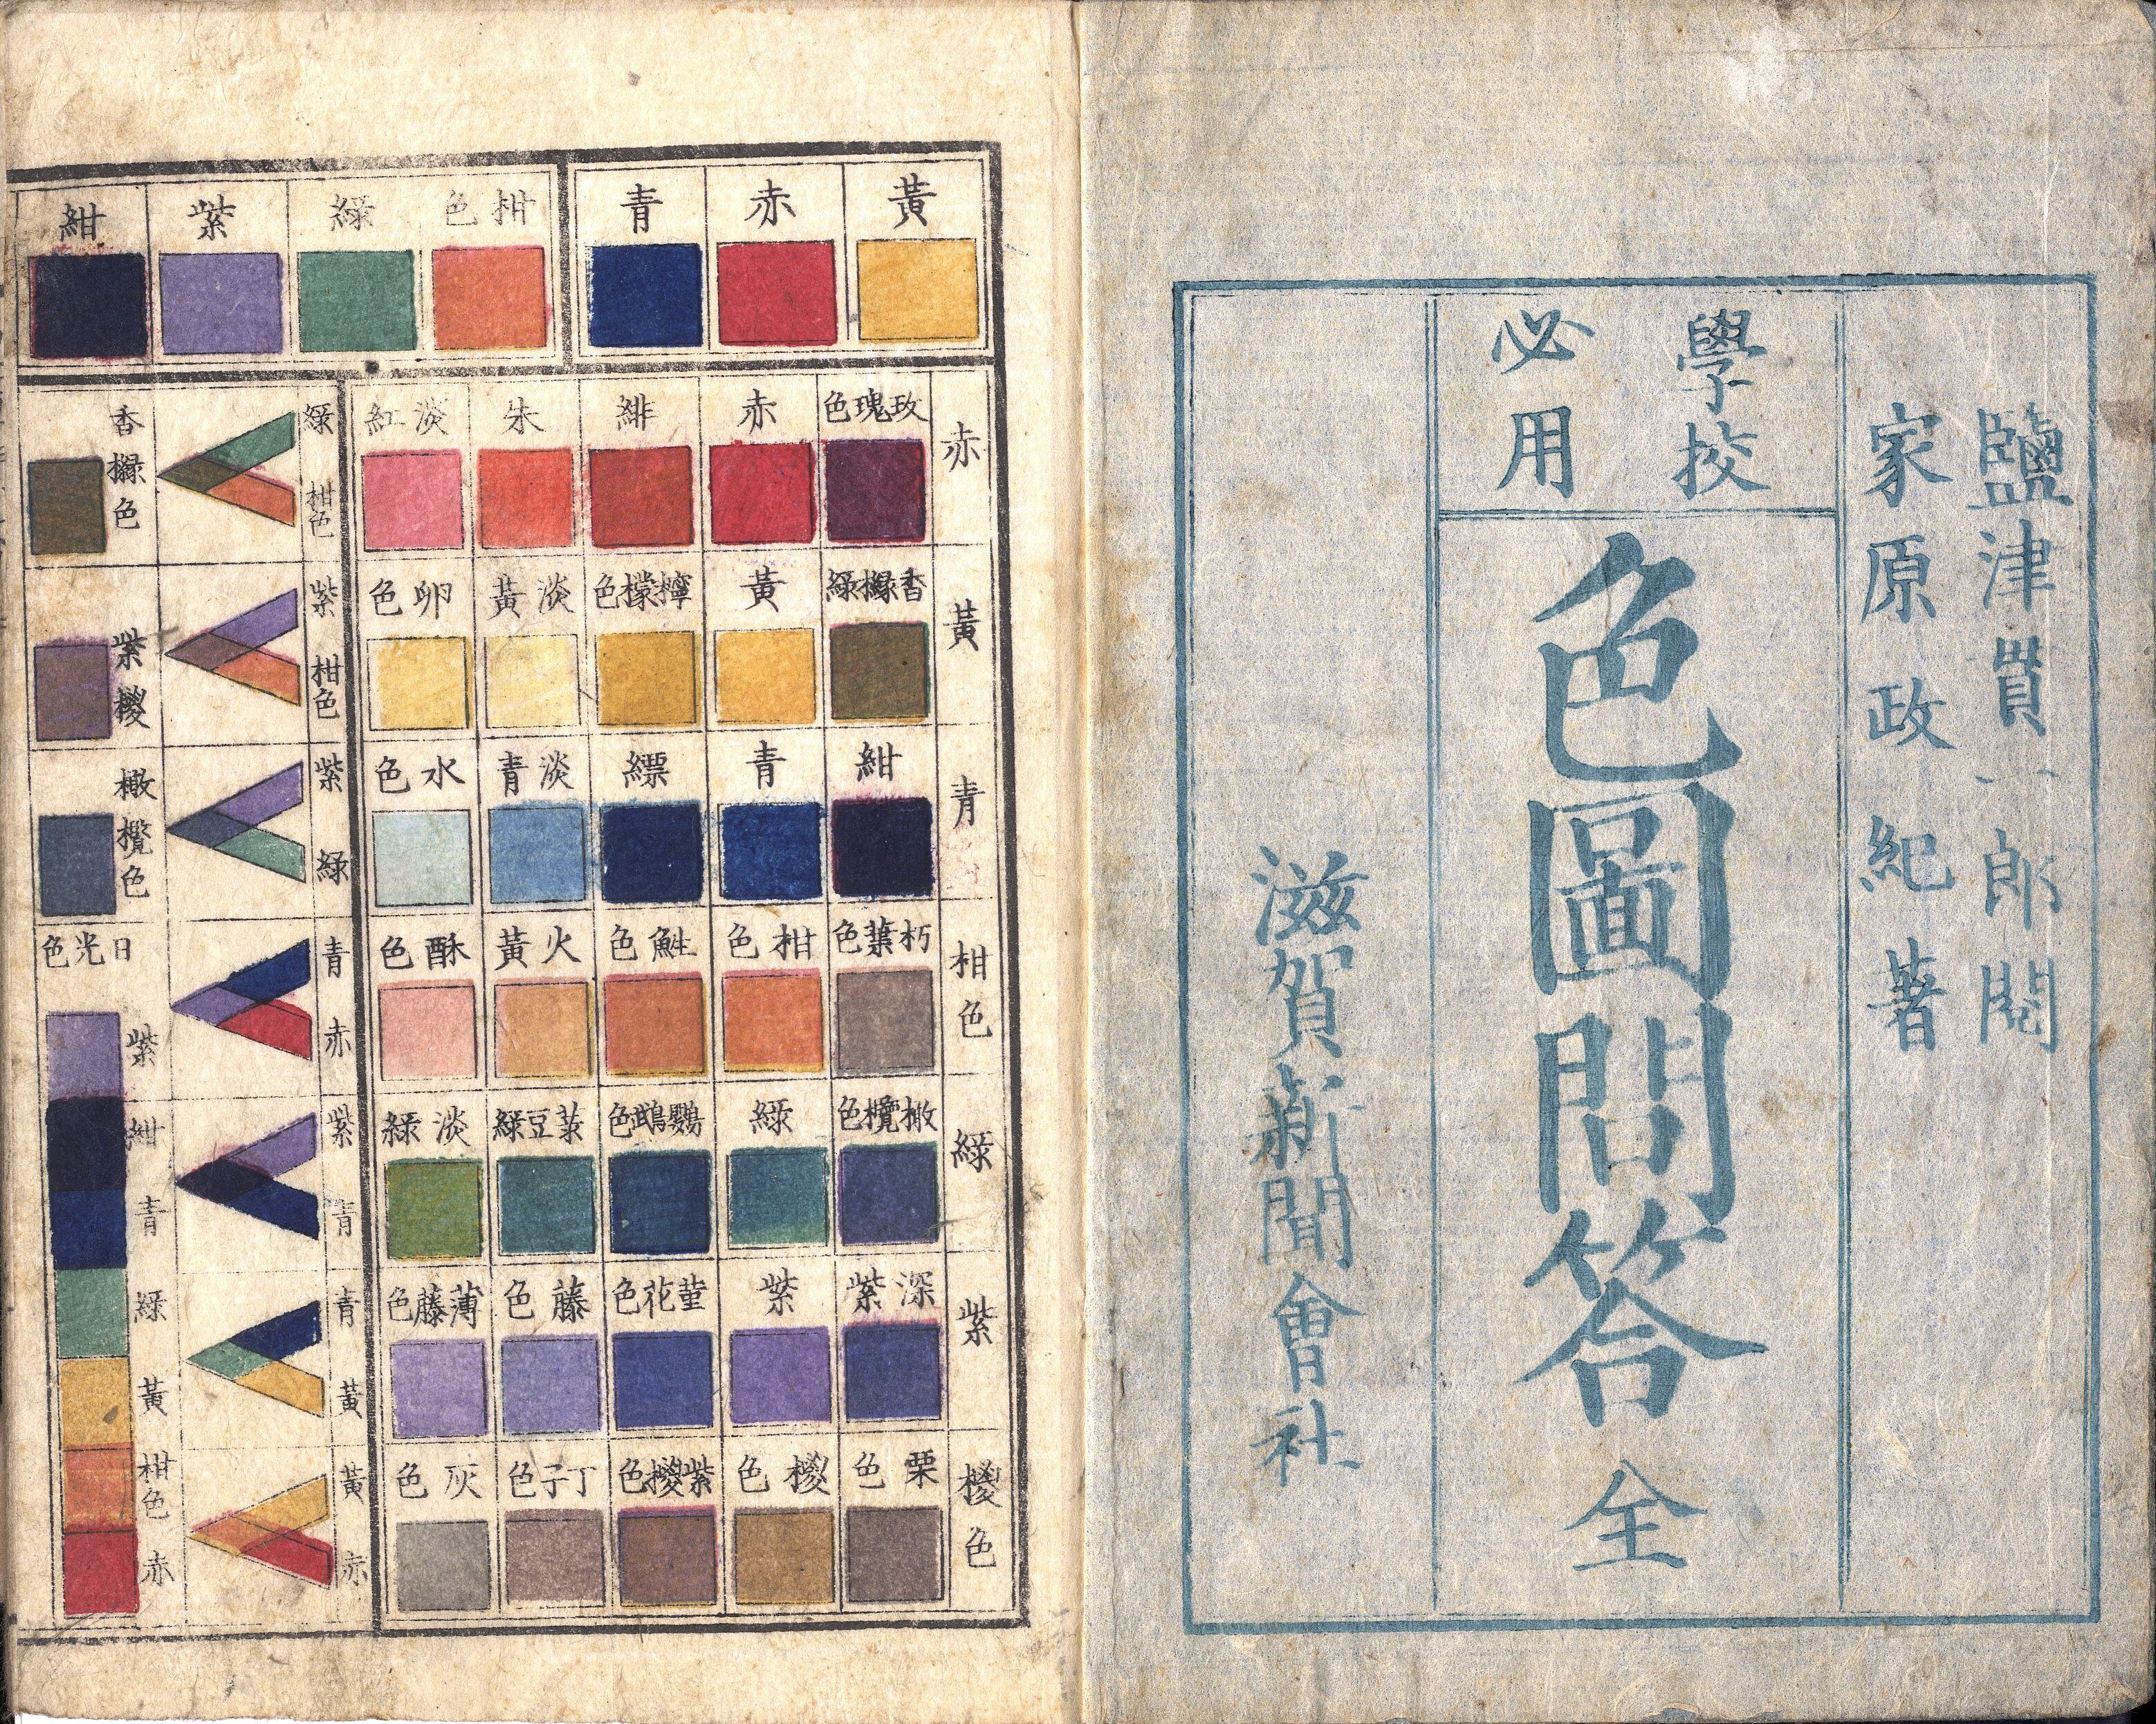 鹽津貫一郎閲
家原政紀著
學校
必用
色圖問答 全
滋賀新聞會社
黃
赤
青
柑色
綠
紫
紺
赤
玫瑰色
赤
緋
朱
淡紅
黃
香櫞綠
黃
檸檬色
淡黃
卵色
青
紺
青
縹
淡青
水色
柑色
朽葉色
柑色
鮏色
火黃
酥色
綠
橄欖色
綠
鸚鵡色
菉豆綠
淡綠
紫
深紫
紫
菫花色
藤色
薄藤色
椶色
栗色
椶色
紫椶色
丁子色
灰色
綠
柑色
紫
柑色
紫
綠
青
赤
紫
青
青
黃
黃
赤
香櫞色
紫椶
橄欖色
日光色
紫
紺
青
綠
黃
柑色
赤